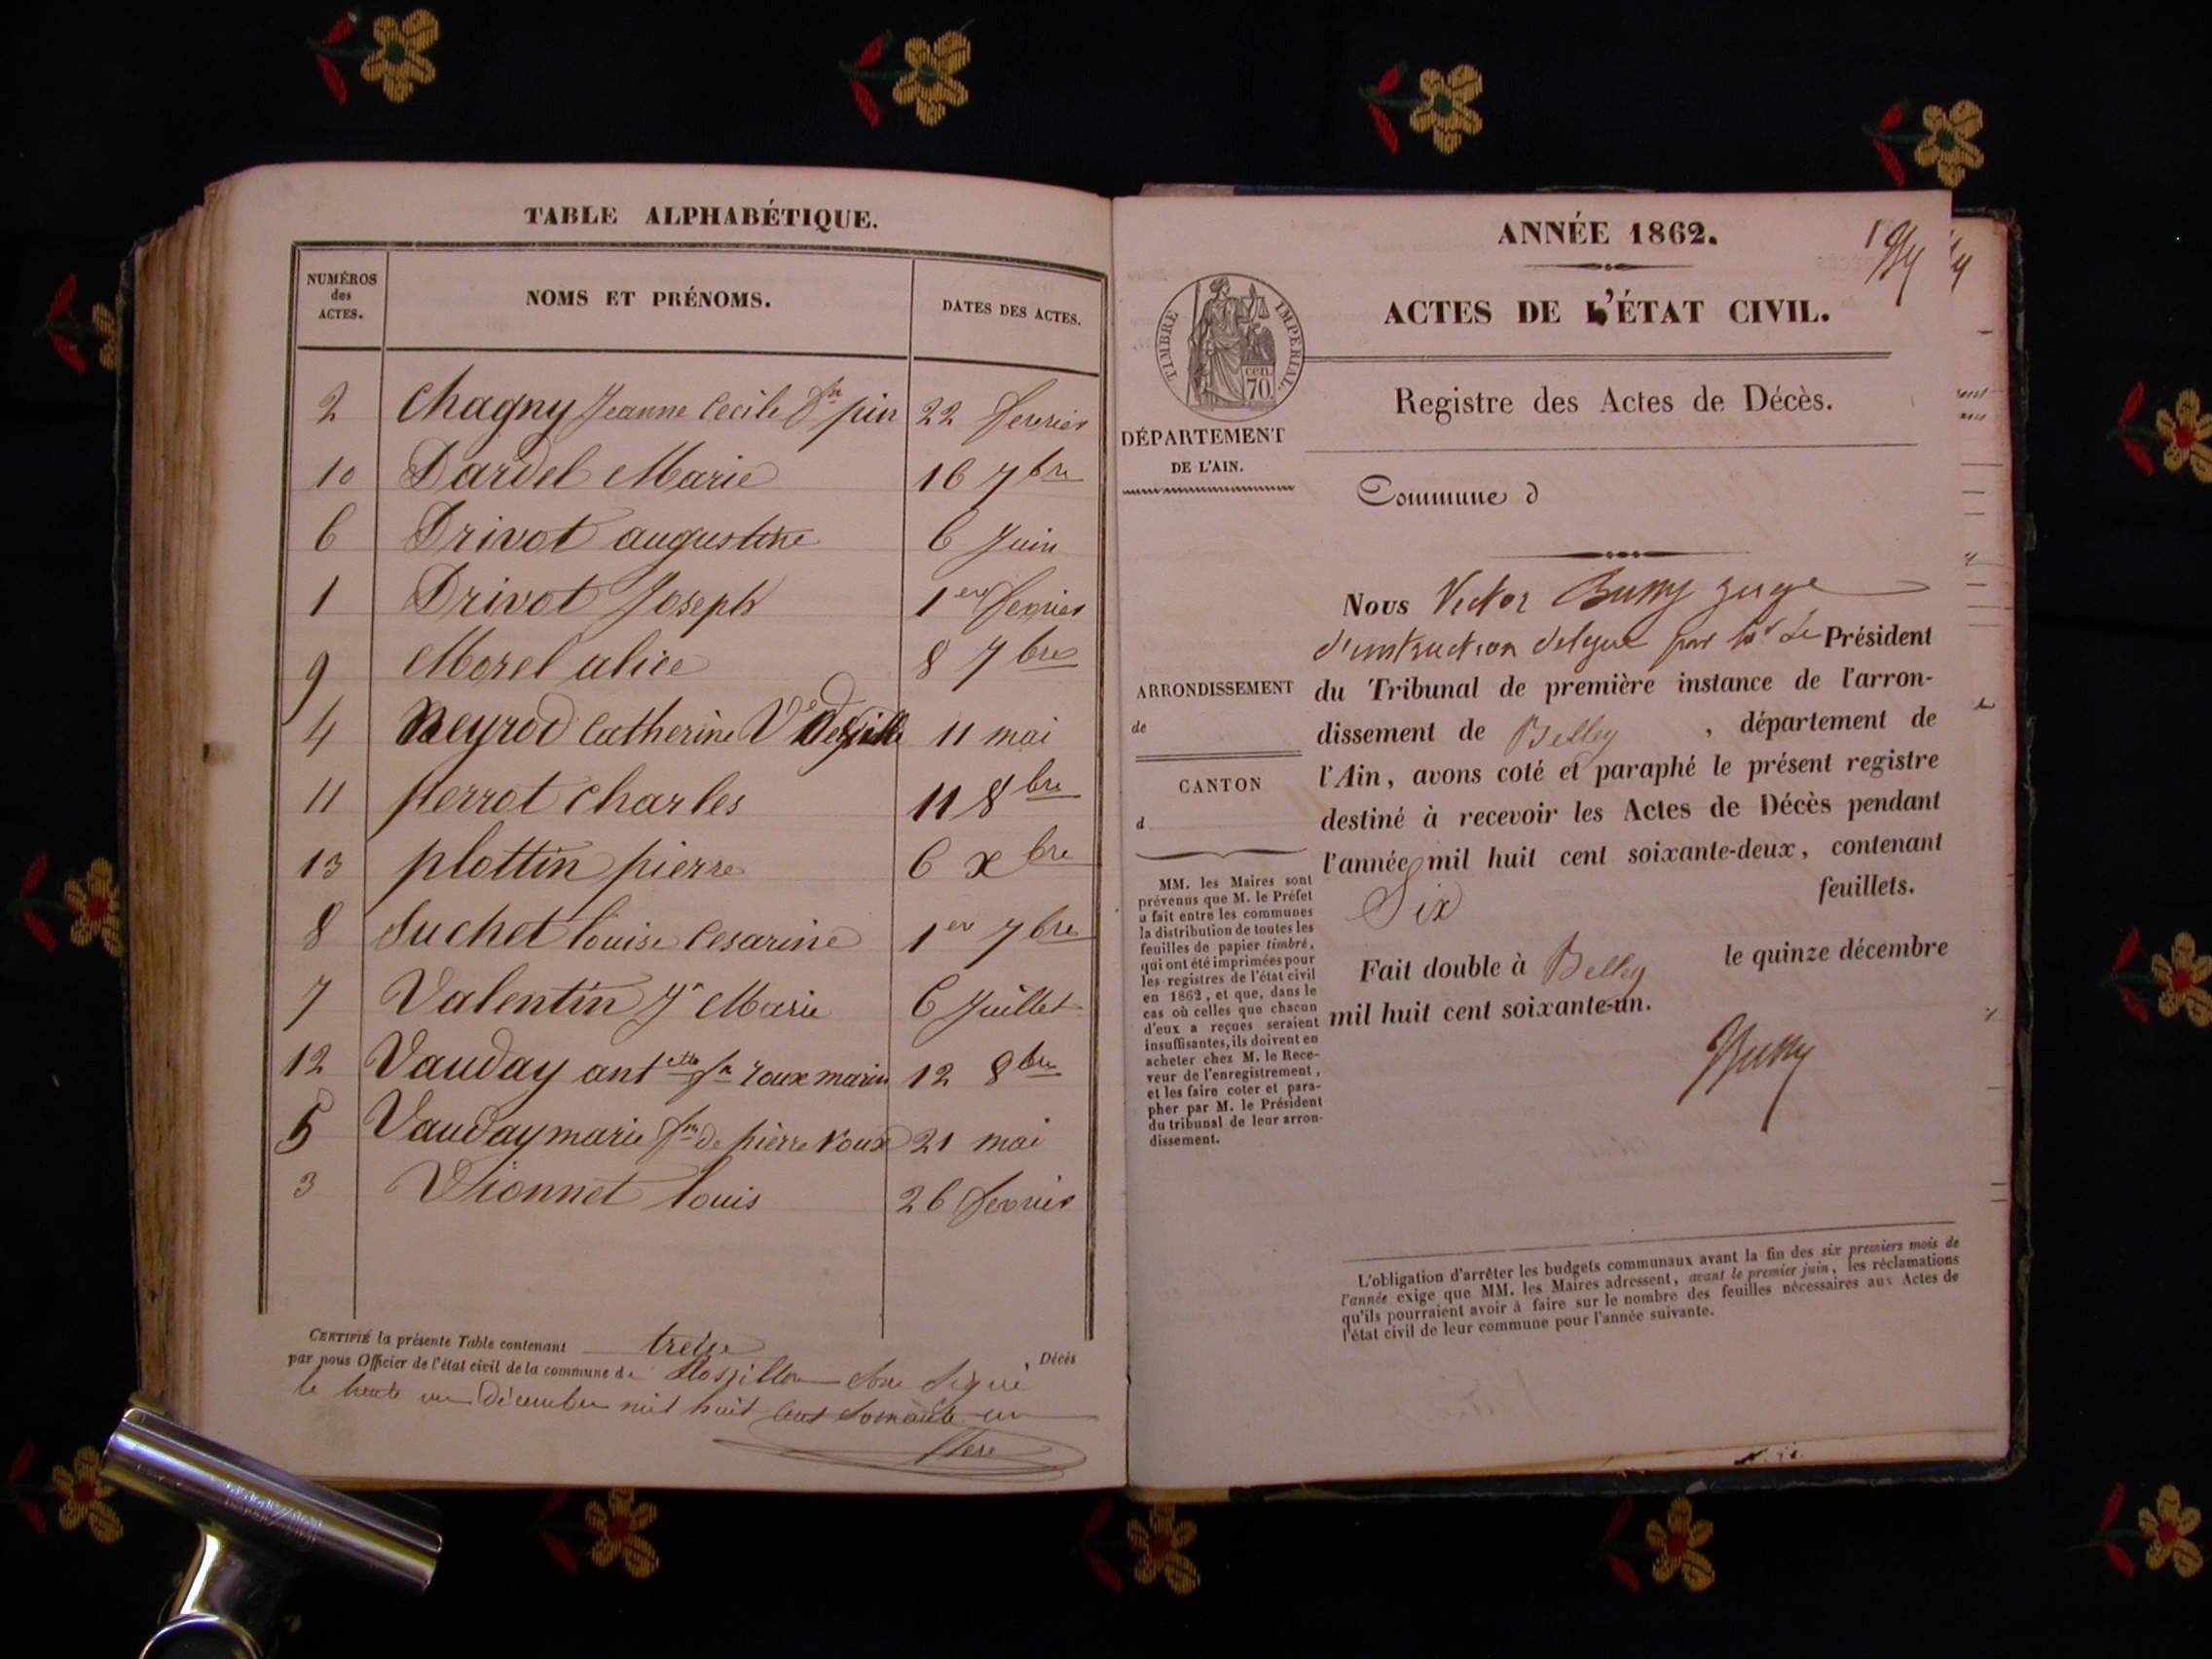 TABLE ALPHABÉTIQUE.
NUMÉROS
des
ACTES.
NOMS ET PRÉNOMS.
DATES DES ACTES.
2 Chagny Jeanne Cecile fe pin 22 fevrier
10 Dardel Marie 16 7bre
6 Drivot augustine 6 Juin
1 Drivot Joseph 1er fevrier
9 Morel alice 8 7bre
4 Neyrod Catherine Ve 11 mai
11 perrot charles 11 8bre
13 plottin pierre 6 xbre
8 Suchet louise Cesarine 1er 7bre
7 Valentin Marie 6 Juillet
12 Vauday antette fe roux marin 12 8bre
5 Vauday marie fe de pierre roux 21 mai
3 Vionnet louis 26 fevrier
CERTIFIÉ la présente Table contenant treize Décès
par nous Officier de l'état civil de la commune de Rossillon
le trente un Décembre mil huit cent soixante un
ANNÉE 1862.
ACTES DE L'ÉTAT CIVIL.
TIMBRE IMPÉRIAL.
cen.
70
Registre des Actes de Décès.
DÉPARTEMENT
DE L'AIN.
Commune d
Nous Victor Bussy juge
d'instruction délégué par Mr Le Président
du Tribunal de première instance de l'arron-
dissement de Belley, département de
l'Ain, avons coté et paraphé le présent registre
destiné à recevoir les Actes de Décès pendant
l'année mil huit cent soixante-deux, contenant
Six feuillets.
Fait double à Belley le quinze décembre
mil huit cent soixante-un.
Bussy
ARRONDISSEMENT
de
CANTON
d
MM. les Maires sont
prévenus que M. le Préfet
a fait entre les communes
la distribution de toutes les
feuilles de papier timbré,
qui ont été imprimées pour
les registres de l'état civil
en 1862, et que, dans le
cas où celles que chacun
d'eux a reçues seraient
insuffisantes, ils doivent en
acheter chez M. le Rece-
veur de l'enregistrement,
et les faire coter et para-
pher par M. le Président
du tribunal de leur arron-
dissement.
L'obligation d'arrêter les budgets communaux avant la fin des six premiers mois de
l'année exige que MM. les Maires adressent, avant le premier juin, les réclamations
qu'ils pourraient avoir à faire sur le nombre des feuilles nécessaires aux Actes de
l'état civil de leur commune pour l'année suivante.